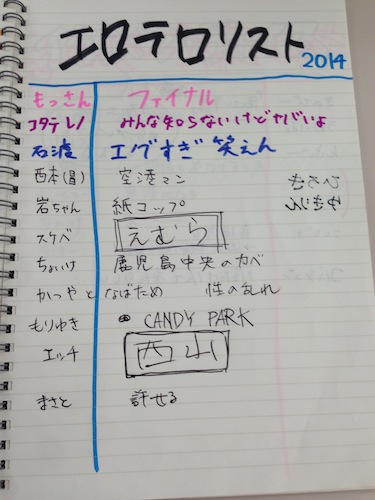 エロテロリスト
2014
もっさん ファイナル
コタテレノ みんな知らないけどヤバいよ
石渡 エグすぎ笑えん
西本(昌) 空港マン
岩ちゃん 紙コップ
スケベ えむら
ちょいけ 鹿児島中央のカベ
かつやとなばため 性の乱れ
もりゆき CANDY PARK
エッチ 西山
まさと 許せる